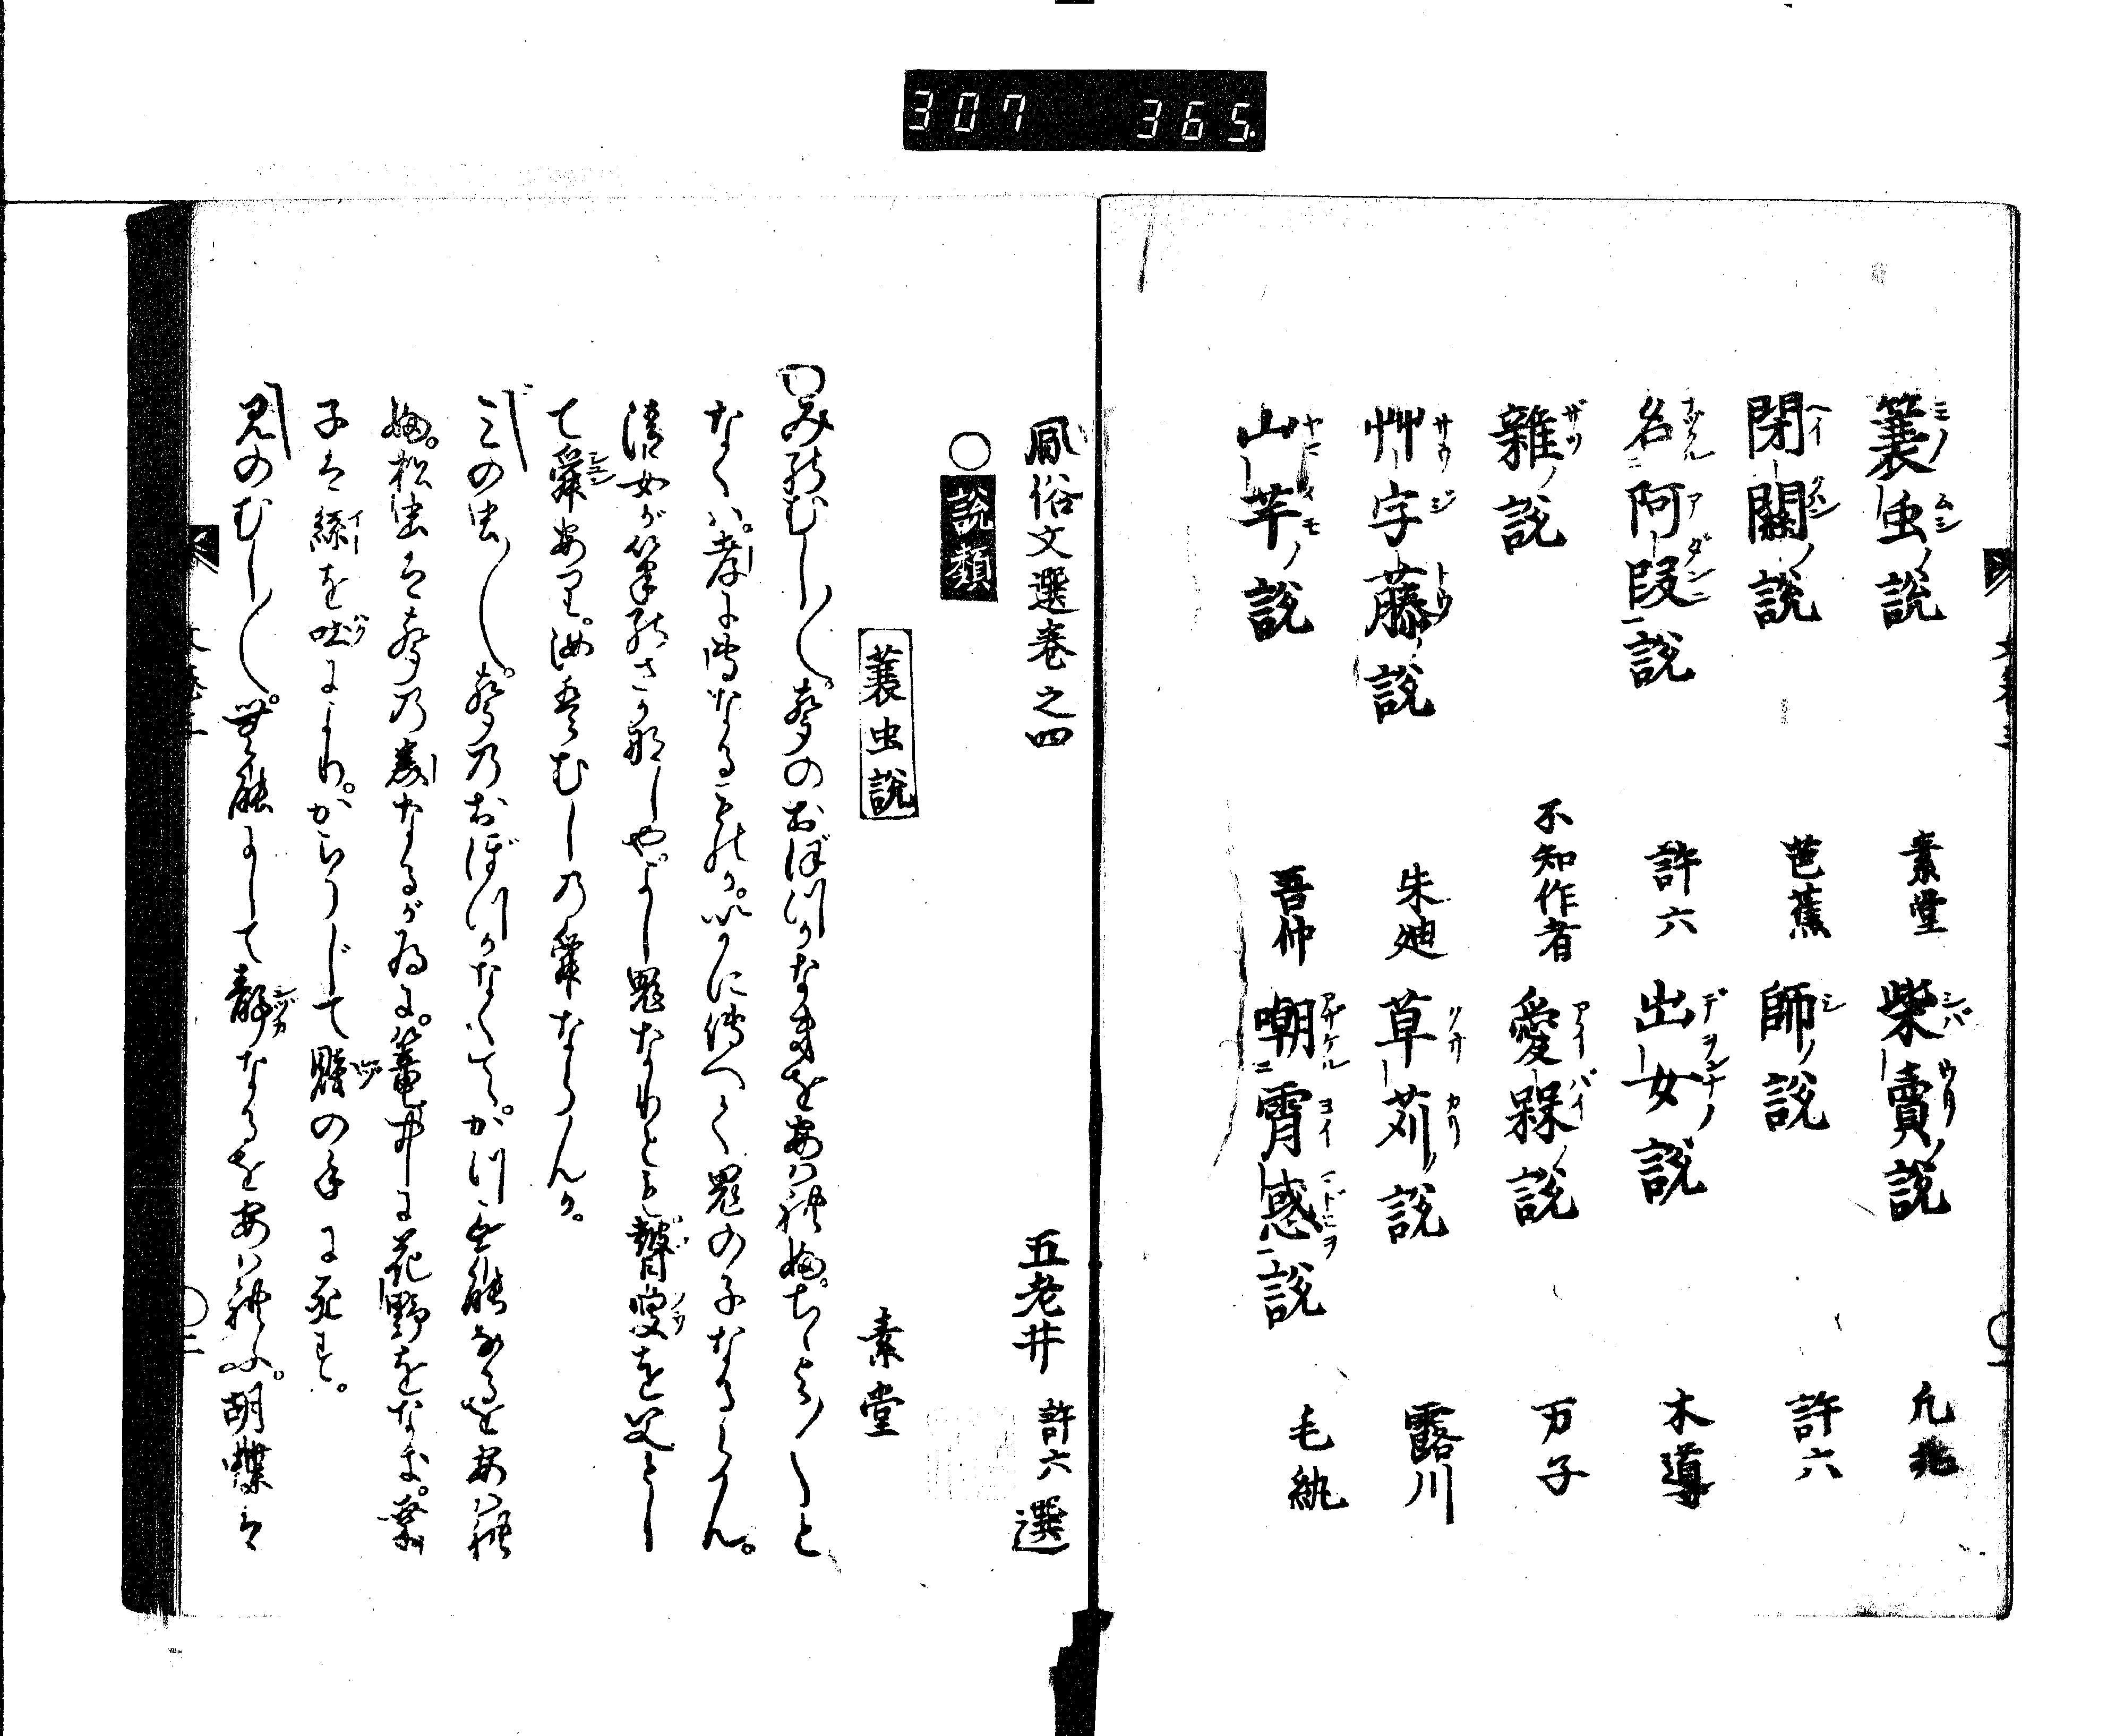 307 365
蓑虫ノ説 素堂 柴賣ノ説 凡兆
閉關ノ説 芭蕉 師ノ説 許六
名阿段説 許六 出女ノ説 木導
雜ノ説 不知作者 愛槑ノ説 万子
艸字藤ノ説 朱廸 草苅ノ説 露川
山芋ノ説 吾仲 嘲霄惑説 毛紈
風俗文選巻之四 五老井 許六 選
○説類
蓑虫説
素堂
みのむし〱。聲のおぼつかなきをあはれぶ。ちゝよ〱と
なくハ。孝に専なるものか。いかに傳へて鬼の子なるらん。
清女が筆のさかなしや。よし鬼なりとも瞽叟を父とし
て舜あり。汝ハむしの舜ならんか。
みのむし〱。聲のおぼつかなくて。かつ無能なるをあはれ
ぶ。松虫ハ聲の美なるが為に。篭中に花野をなき。桑
子ハ絲を吐により。からうじて賤の手に死す。
みのむし〱。無能にして静なるをあはれふ。胡蝶ハ